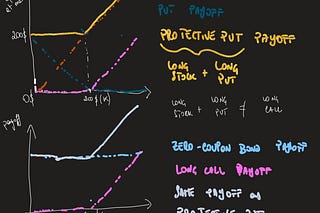 PUT PAYOFF
200$
PROTECTIVE PUT PAYOFF
LONG STOCK + LONG PUT
LONG STOCK + LONG PUT ≠ LONG CALL
0$
200$ (K)
payoff
ZERO-COUPON BOND PAYOFF
LONG CALL PAYOFF
SAME PAYOFF as
PROTECTIVE PUT